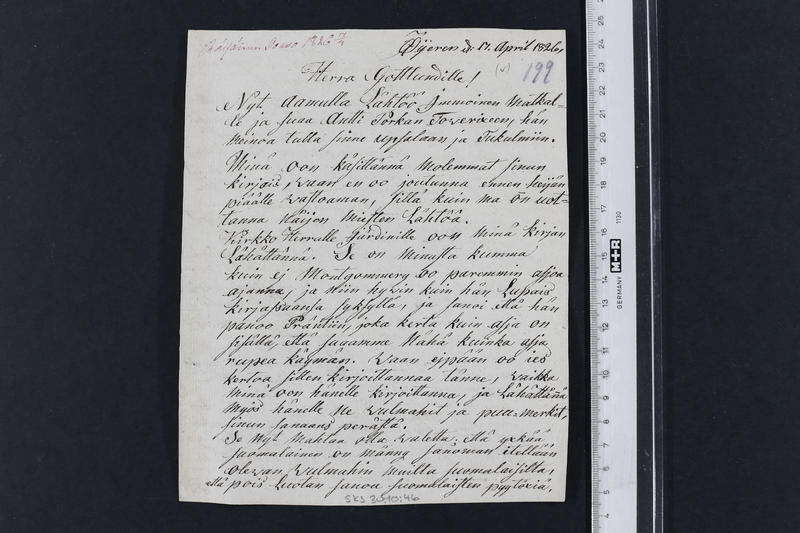 1826 7/4
Öijeren d: 17. April 1826,
Herra Gottlundille! (v) 199
Nyt aamulla Lähtöö Immoinen Matkal-
le ja suaa Antti Porkan Toverixeen, hän
Meinoa tulla sinne upsalaan ja Tukulmiin.
Minä oon käsittännä Molemmat sinun
kirjais, waan en oo joutunna ennen heijän
piäälle wastoaman, sillä kuin ma ȯn uot-
tanna Näijon Miesten Lähtöä.
Kirkko Herralle Järdinille oon minä kirjan
Lähättännä. Se on Minusta kumma
kuin ej Montgommery oo paremmin asjoa
ajanna, ja Niin hywin kuin hän Lupais
kirjassaansa syksyllä, ja sanoi että hän
panoo Präntiin, joka kerta kuin asja on
sisällä, että suamme Nähä kuinka asja
rupea käymän. Waan ejpään oo ies
kertoa sitten kirjoittannaa tänne, waikka
Minä oon hänelle kirjoittanna, ja Lähättänä
Myös hänelle Ne wulmahit ja puu-merkit,
sinun sanaans perästä.
Se Nyt Mahtaa olla waletta, että yxkää
suomalainen on männy sanoman itellään
olewan wulmahin muilta suomalaisilta,
että pois Luotan sanoa suomalaisten pyytöxiä.
SKS 3510:46
GERMANY M+R 1130